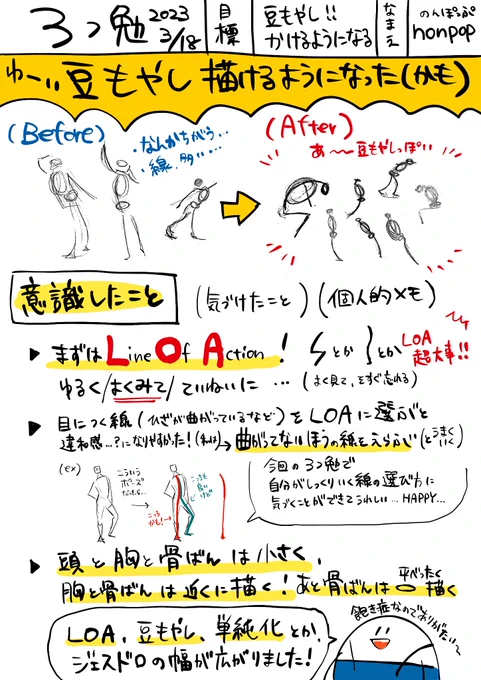 3つ勉 2023 3/18 目標 豆もやし!! かけるようになる なまえ のんぽっぷ honpop
わーい豆もやし描けるようになった(かも)
(Before) (After)
なんかちがう… あ〜〜豆もやしっぽい
線、多い…
意識したこと (気づけたこと) (個人的メモ)
▶ まずは Line Of Action! とか とか LOA 超大事!!
ゆるく/よくみて/ていねいに … (よく見て、をすぐ忘れる)
▶ 目につく線 (ひざが曲がっているなど) をLOAに選ぶと
違和感…?になりやすかった!(私は)→曲がってないほうの線をえらぶ(とうまくいく)
(ex) こういうポーズだったら… こっちも良いけど
こっちかも!→
今回の3つ勉で
自分がしっくりいく線の選び方に
気づくことができてうれしい…HAPPY…
▶ 頭と胸と骨ばんは小さく、
胸と骨ばんは近くに描く! あと骨ばんは平べったく描く
LOA、豆もやし、単純化とか、
ジェスドロの幅が広がりました!
飽き症なのでありがたい〜